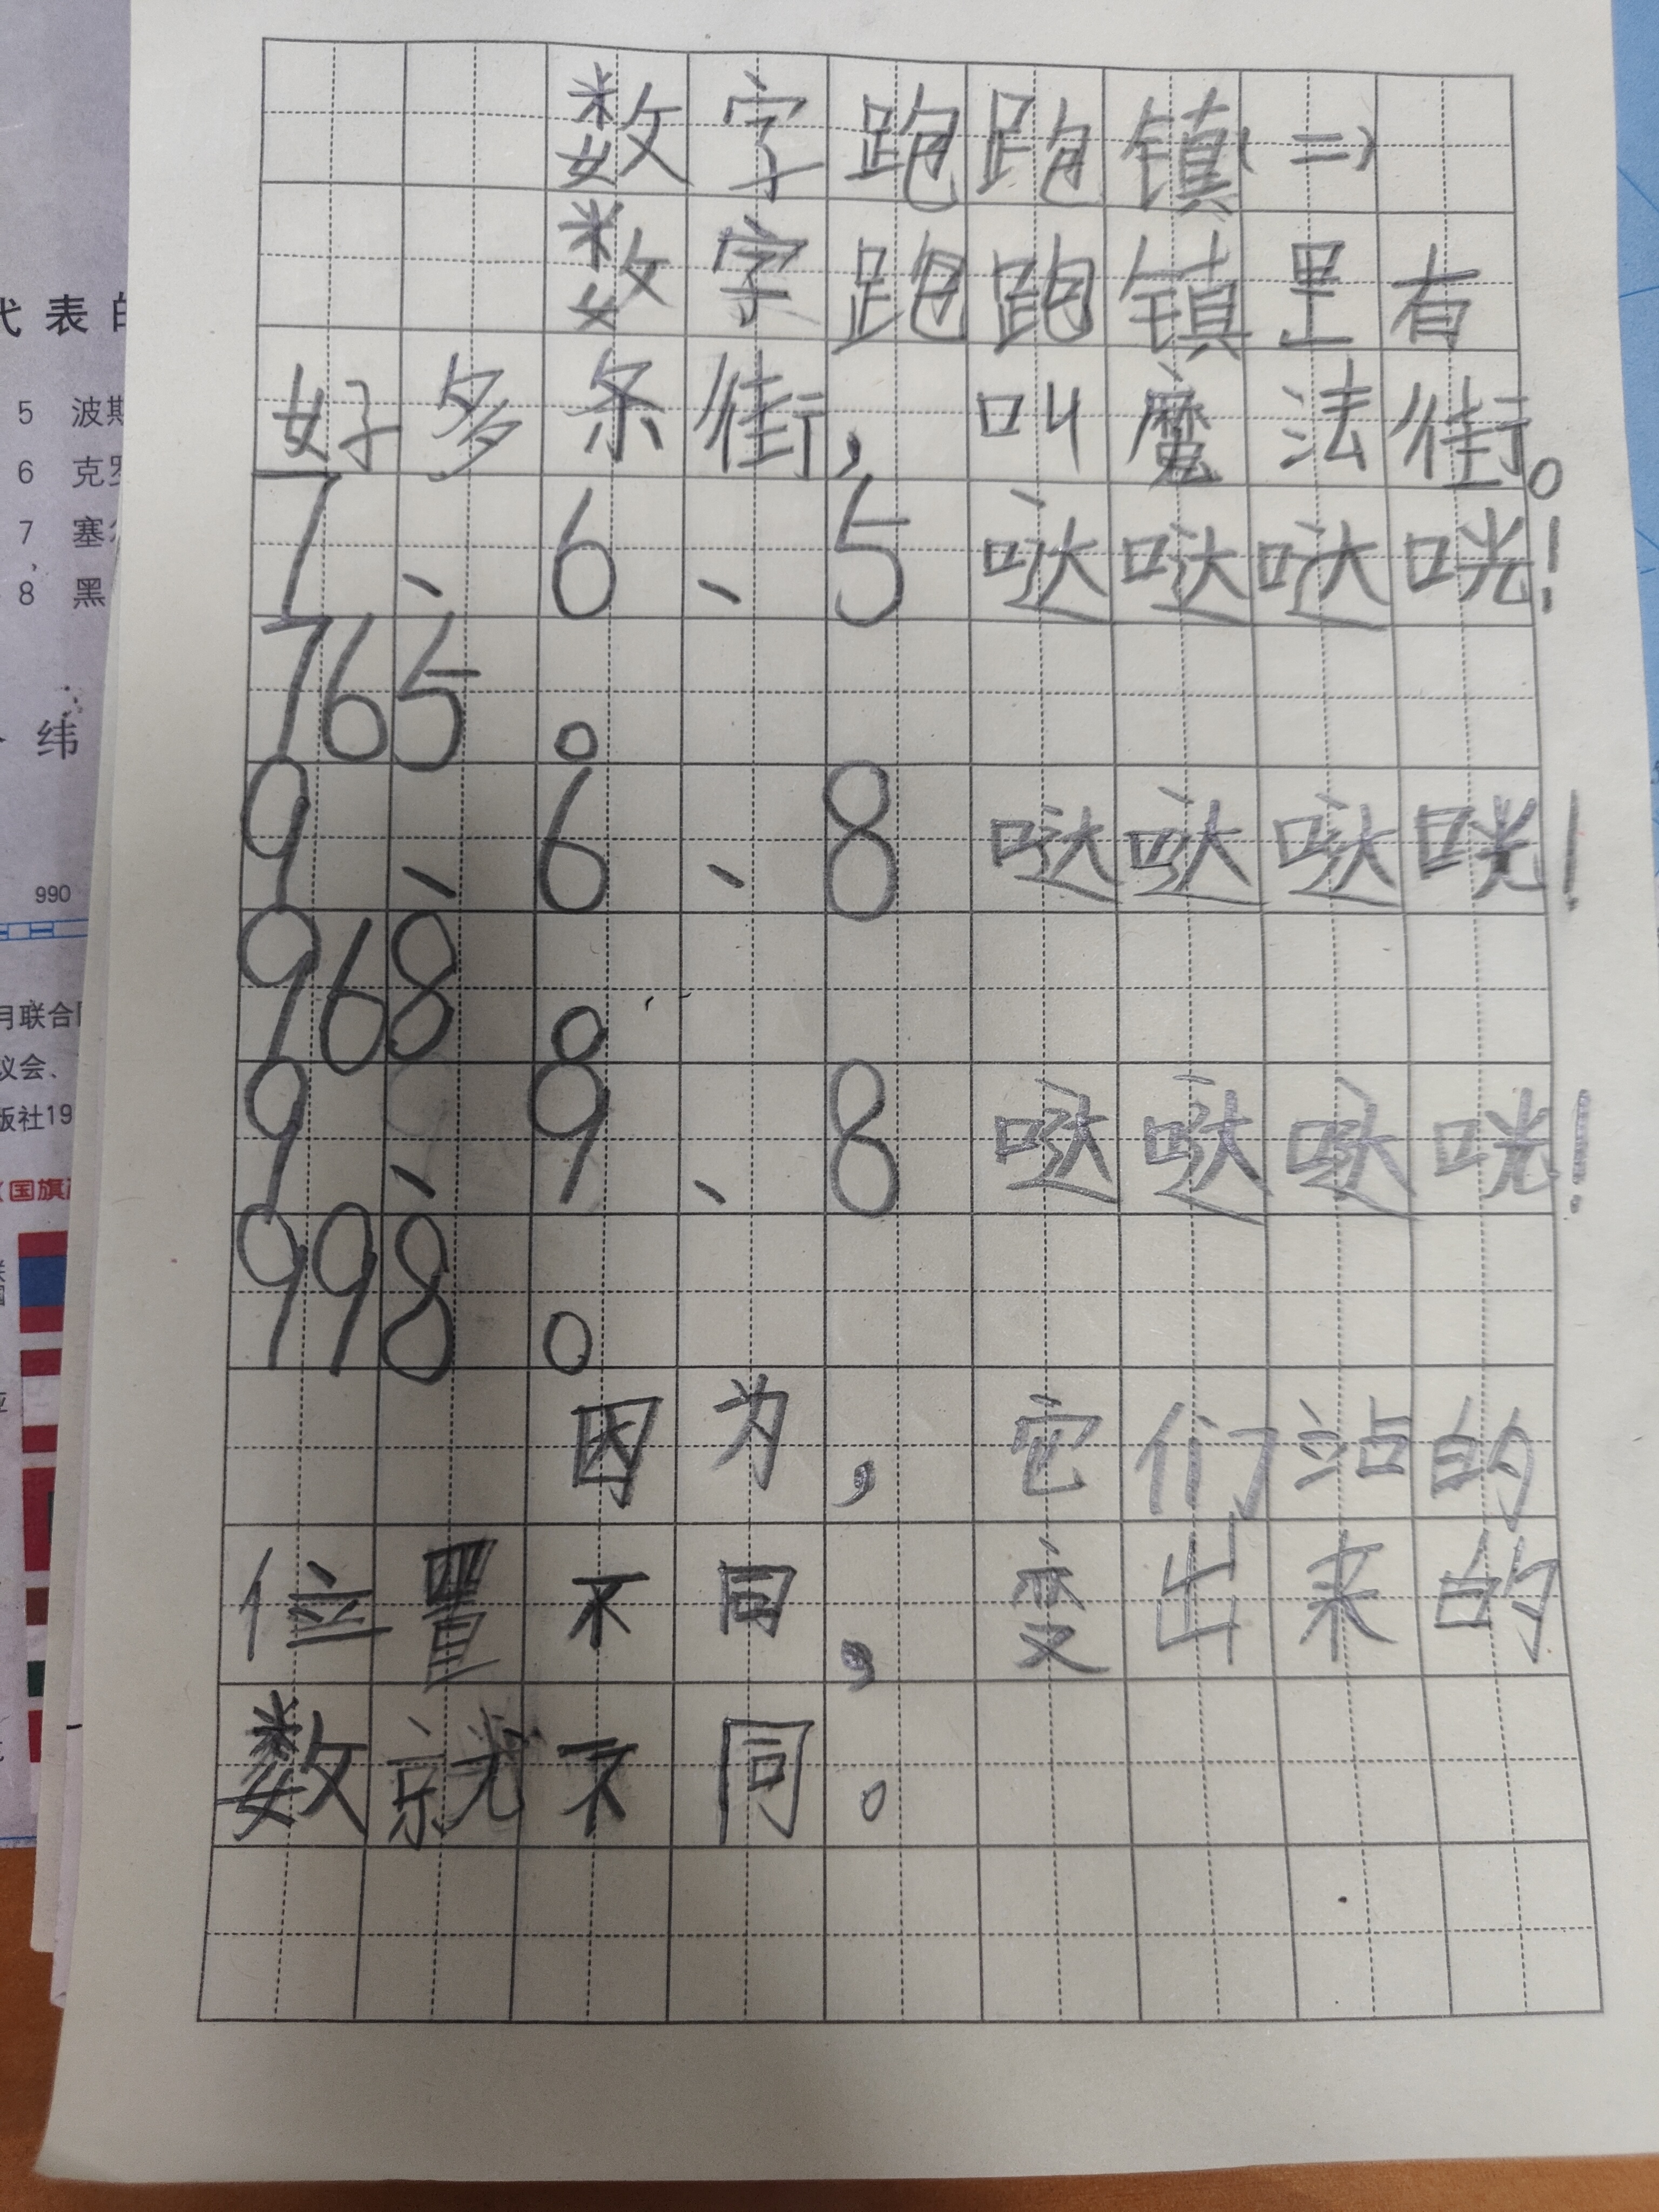 数字跑跑镇(二)
数字跑跑镇里有
好多条街，叫魔法街。
7、6、5哒哒哒咣！
765。
9、6、8哒哒哒咣！
968。
9、9、8哒哒哒咣！
998。
因为，它们站的
位置不同，变出来的
数就不同。
代表
5 波斯
6 克罗
7 塞
8 黑
纬
990
月联合
议会、
版社19
(国旗